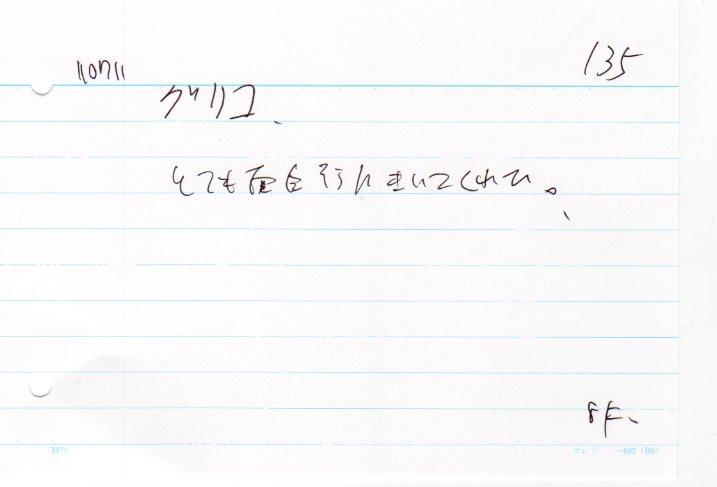 110711
135
グリコ、
とても面白そうにきいてくれた。
8F、
コレクト-602(B6)